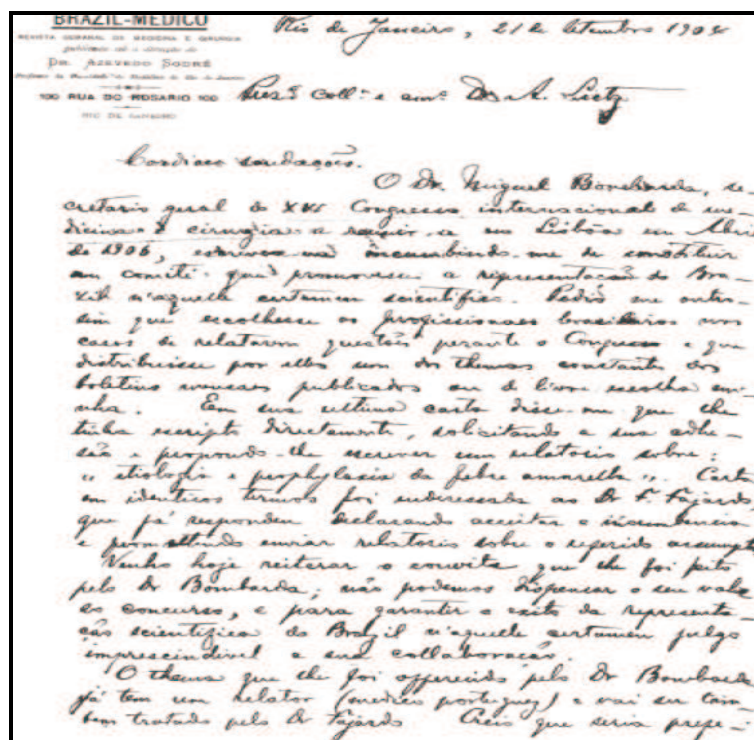 BRAZIL-MEDICO
REVISTA SEMANAL DE MEDICINA E CIRURGIA
publicada sob a direcção do
DR. AZEVEDO SODRÉ
Professor da Faculdade de Medicina do Rio de Janeiro
100 RUA DO ROSARIO 100
RIO DE JANEIRO
Rio de Janeiro, 21 de Setembro 1904
Presº Collª e amº Dr A. Lutz
Cordiaes saudações.
O Dr. Miguel Bombarda, se-
cretario geral do XVº Congresso internacional de me-
dicina e cirurgia a reunir-se em Lisbôa em Abril
de 1906, escreveu-me incumbindo-me de constituir
um comité que promovesse a representação do Bra-
zil n'aquelle certamen scientifico. Pedio-me outro-
sim que escolhesse os profissionaes brasileiros nos
casos de relatarem questões perante o Congresso e que
distribuisse por elles um dos themas constantes dos
boletins mensaes publicados ou de livre escolha mi-
nha. Em sua ultima carta disse-me que lhe
tinha escripto directamente, solicitando a sua adhe-
são e propondo-lhe escrever um relatorio sobre:
"etiologia e prophylaxia da febre amarella". Carta
em identicos termos foi endereçada ao Dr F. Fajardo
que já respondeu declarando acceitar a incumbencia
e promettendo enviar relatorio sobre o referido assumpto
Venho hoje reiterar o convite que lhe foi feito
pelo Dr Bombarda; não podemos dispensar o seu valio
so concurso, e para garantir o exito da representa-
ção scientifica do Brazil n'aquelle certamen julgo
imprescindivel a sua collaboração.
O thema que lhe foi offerecido pelo Dr Bombarda
já tem um relator (medico portuguez) e vai ser tam-
bem tratado pelo Dr Fajardo Creio que seria prefe-